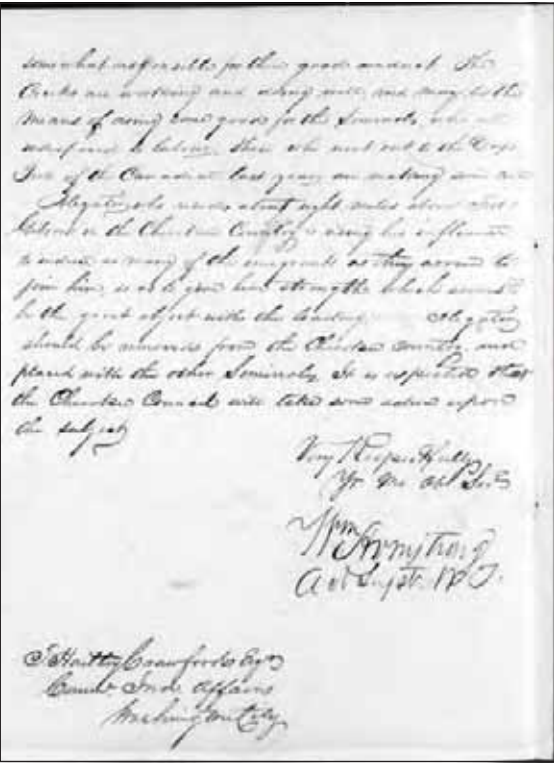 somewhat responsible for their good conduct. The
Creeks are working and doing well, and may be the
means of doing some good for the Seminoles, who are
indisposed to labour, those who went out to the Deep
Fork of the Canadian last year are making some corn
Alligator who resides about eight miles above Fort
Gibson in the Cherokee Country is using his influence
to induce as many of the emigrants as they arrive to
join him, so as to give him strength which seems
to be the great object with the leaders. Alligator
should be removed from the Cherokee country and
placed with the other Seminoles. It is expected that
the Cherokee Council will take some action upon
the subject
Very Respectfully
Yr Mo Obt Svt
Wm Armstrong
Act Supt W T.
T Hartley Crawford Esqr
Comr Ind Affairs
Washington City